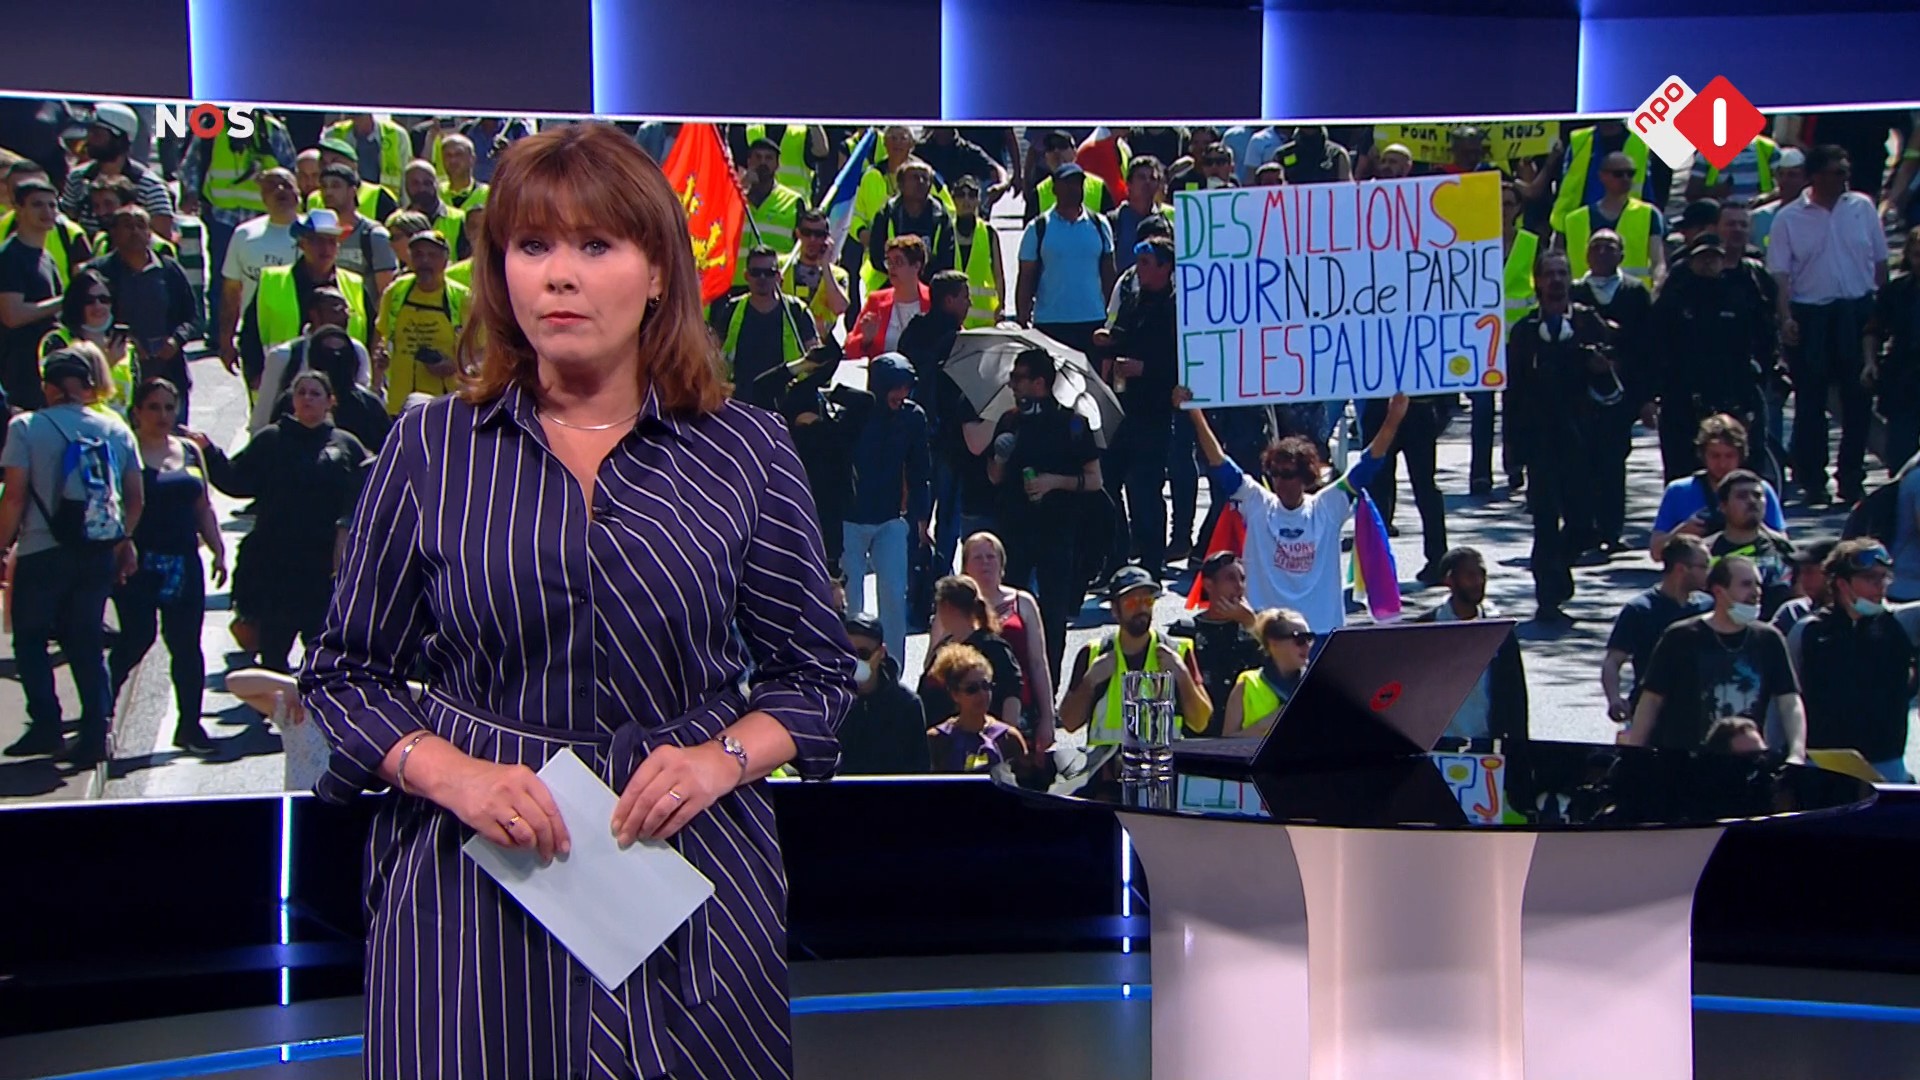 NOS
npo
1
POUR NOUS
!!
DES MILLIONS
POUR N.D. de PARIS
ET LES PAUVRES?